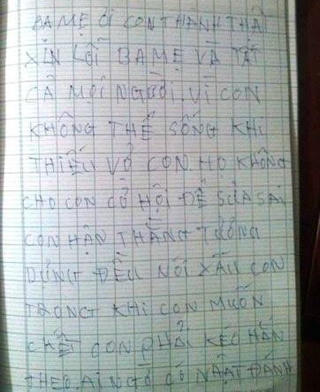 BA MẸ ƠI CON THÀNH THẬT
XIN LỖI BA MẸ VÀ TẤT
CẢ MỌI NGƯỜI. VÌ CON
KHÔNG THỂ SỐNG KHI
THIẾU VỢ CON. HỌ KHÔNG
CHO CON CƠ HỘI ĐỂ SỬA SAI
CON HẬN THẰNG TƯỞNG
DỪNG ĐỀU NÓI XẤU CON
TRONG KHI CON MUỐN
CHẾT CON PHẢI KÉO HẮN
THEO. AI NGỜ CÔ ĐÁNH